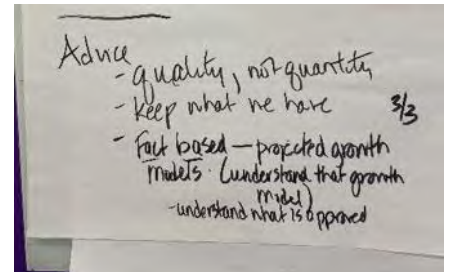 Advice
- quality, not quantity
- Keep what we have 3/3
- Fact based — projected growth
models. (understand that growth
model)
- understand what is approved